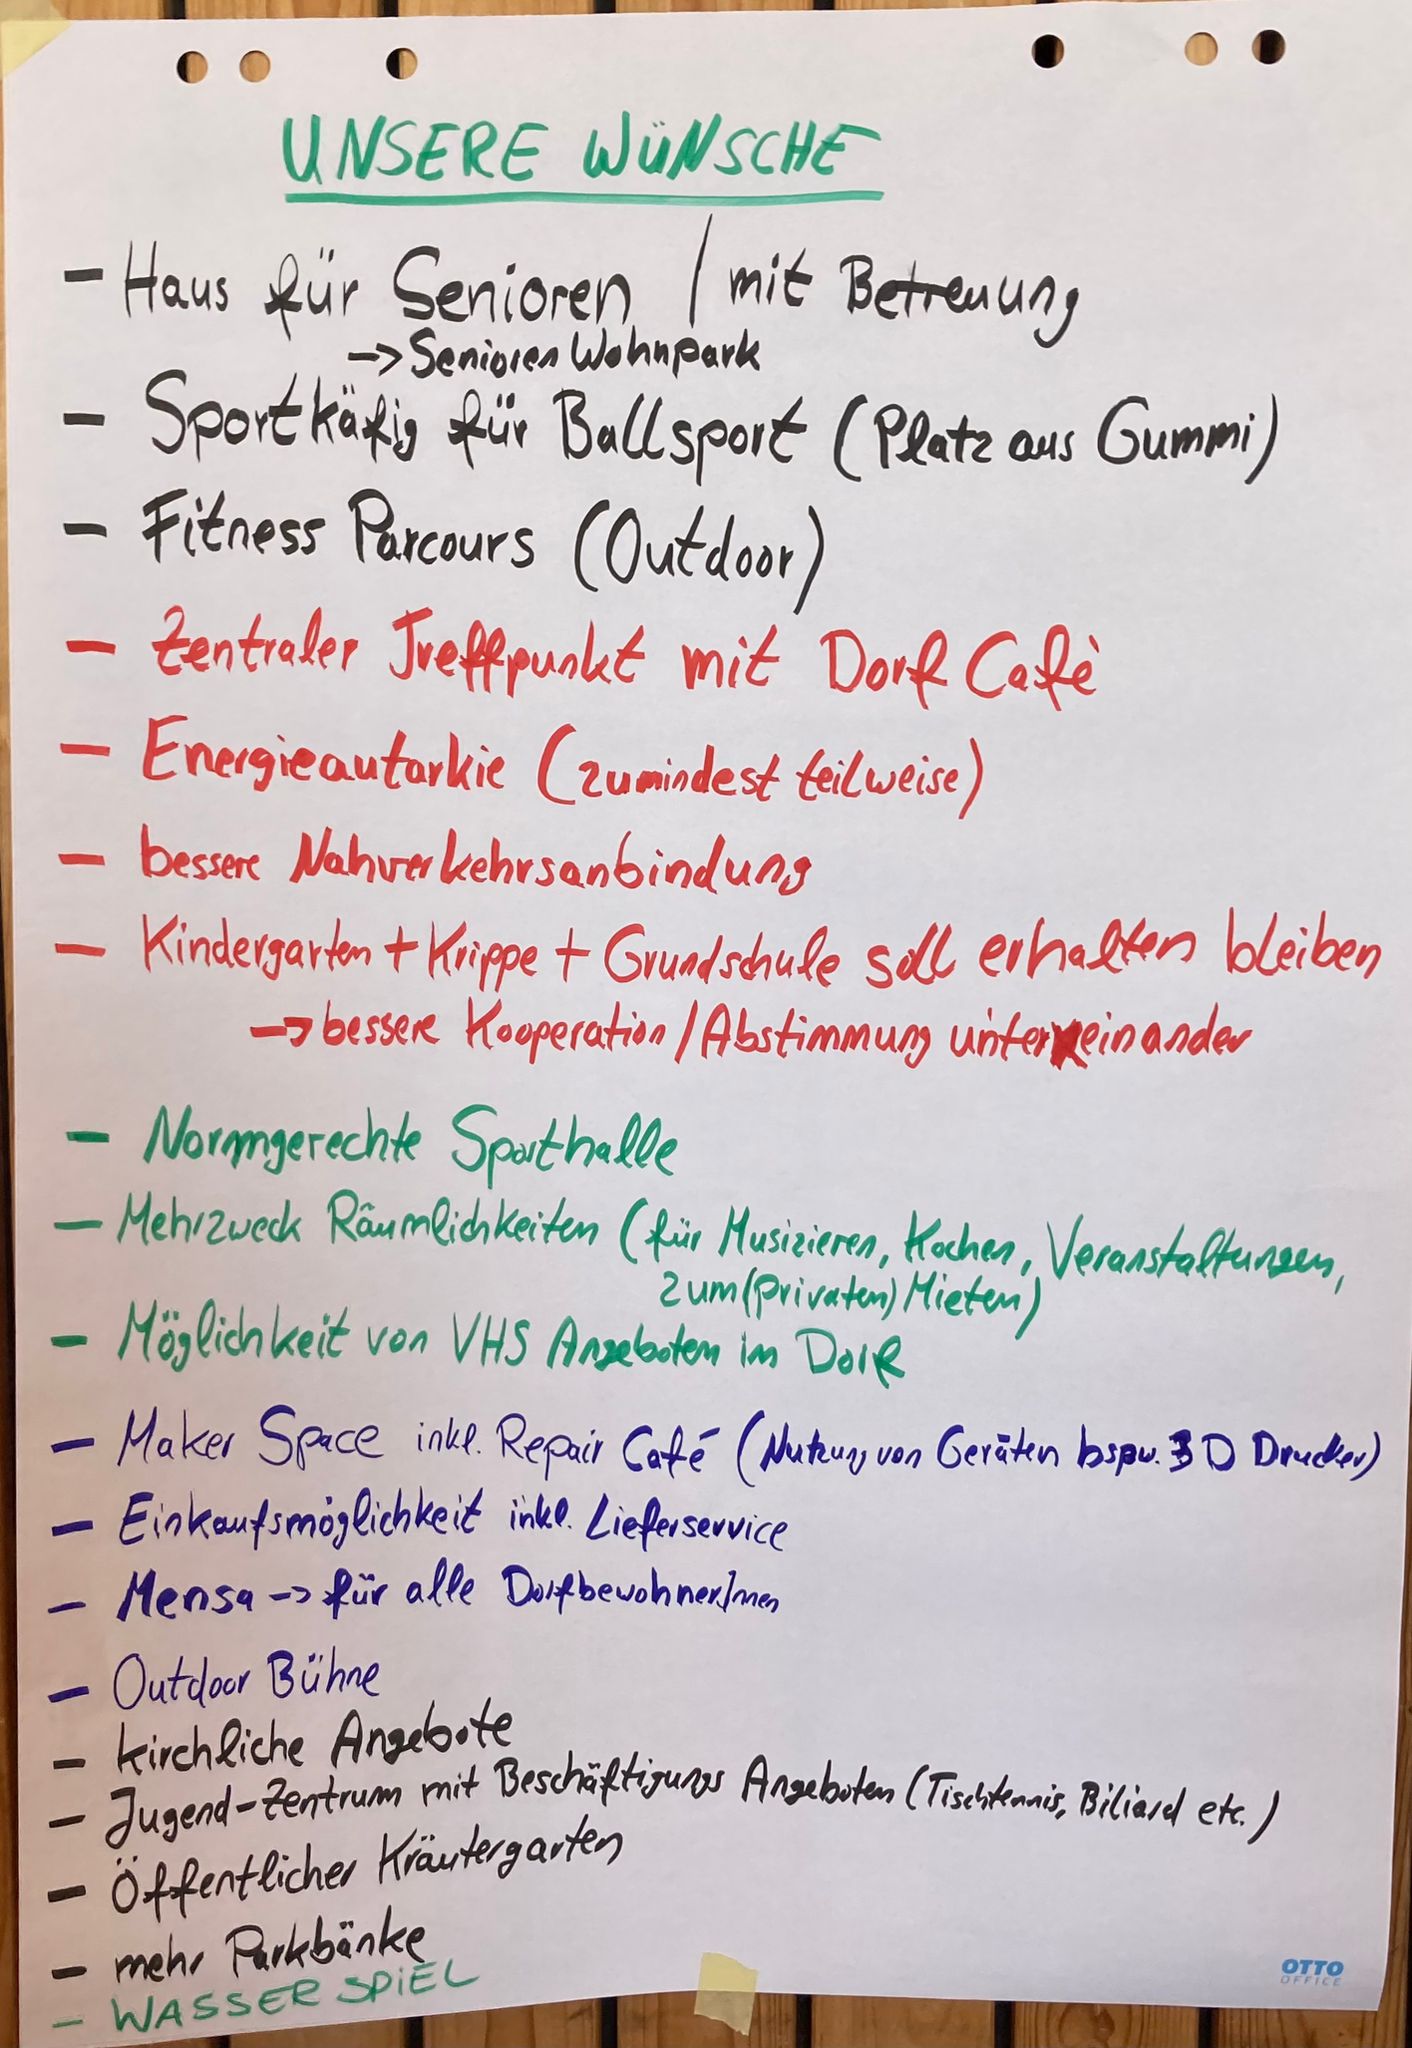 UNSERE WÜNSCHE
- Haus für Senioren / mit Betreuung
-> Senioren Wohnpark
- Sportkäfig für Ballsport (Platz aus Gummi)
- Fitness Parcours (Outdoor)
- Zentraler Treffpunkt mit Dorf Cafè
- Energieautarkie (zumindest teilweise)
- bessere Nahverkehrsanbindung
- Kindergarten + Krippe + Grundschule soll erhalten bleiben
-> bessere Kooperation / Abstimmung untereinander
- Normgerechte Sporthalle
- Mehrzweck Räumlichkeiten (für Musizieren, Kochen, Veranstaltungen,
zum (privaten) Mieten)
- Möglichkeit von VHS Angeboten im Dorf
- Maker Space inkl. Repair Café (Nutzung von Geräten bspw. 3D Drucker)
- Einkaufsmöglichkeit inkl. Lieferservice
- Mensa -> für alle DorfbewohnerInnen
- Outdoor Bühne
- kirchliche Angebote
- Jugend-Zentrum mit Beschäftigungs Angeboten (Tischtennis, Biliard etc.)
- Öffentlicher Kräutergarten
- mehr Parkbänke
- WASSERSPIEL
OTTO
OFFICE